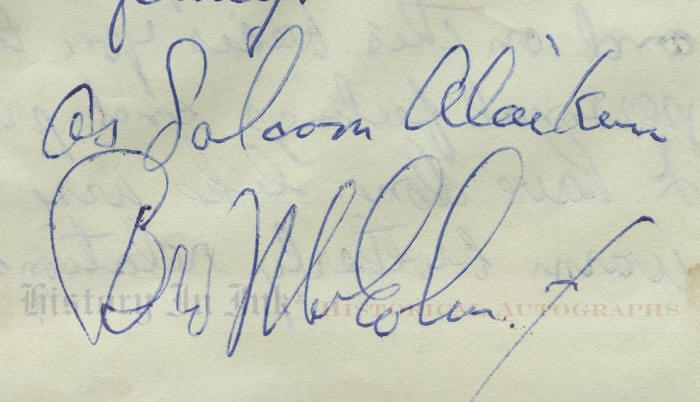 As Salaam Alaikum
Bro Malcolm X
History In Ink Historical Autographs